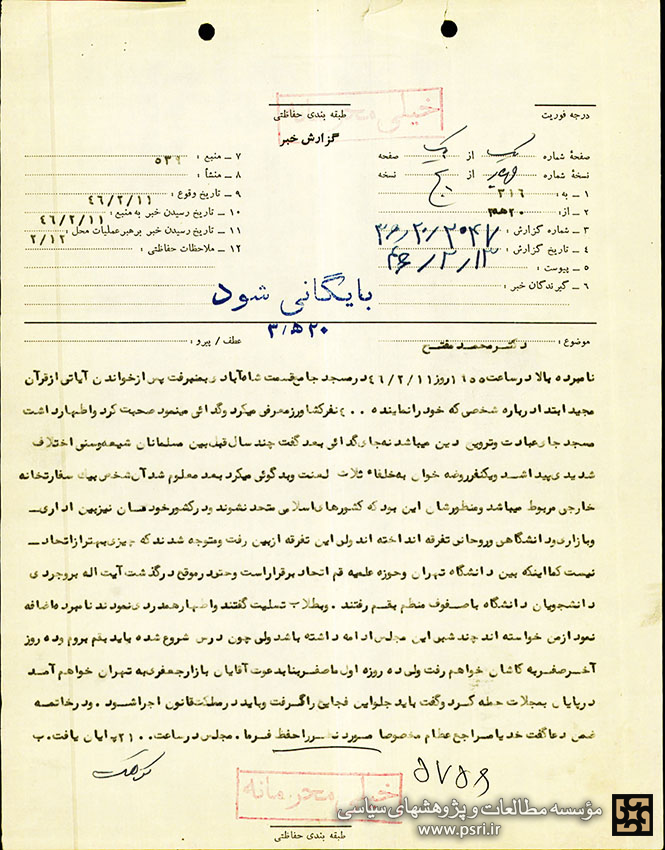 خیلی محرمانه
درجه فوریت
طبقه بندی حفاظتی
گزارش خبر
صفحهٔ شماره یک از یک صفحه
نسخهٔ شماره چهار از پنج نسخه
۱ ـ به : ۳۱۶
۲ ـ از : ۲۰ه‍۳
۳ ـ شماره گزارش :
۴ ـ تاریخ گزارش : ۴۶/۲/۱۳
۵ ـ پیوست :
۶ ـ گیرندگان خبر :
۷ ـ منبع : ۵۳۹
۸ ـ منشأ :
۹ ـ تاریخ وقوع : ۴۶/۲/۱۱
۱۰ ـ تاریخ رسیدن خبر به منبع : ۴۶/۲/۱۱
۱۱ ـ تاریخ رسیدن خبر برهبر عملیات محل : ۲/۱۲
۱۲ ـ ملاحظات حفاظتی :
بایگانی شود
۲۰ه‍/۳
موضوع : دکتر محمد مفتح
عطف / پیرو :
نامبرده بالا در ساعت ۱۶۵۵ روز ۴۶/۲/۱۱ در مسجد جامع قسمت شاه آبادی بمنبر رفت پس از خواندن آیاتی از قرآن
مجید ابتدا درباره شخصی که خود را نماینده ۴۰۰ نفر کشاورز معرفی میکرد و گدائی مینمود صحبت کرد و اظهار داشت
مسجد جای عبادت و ترویج دین میباشد نه جای گدائی بعد گفت چند سال قبل بین مسلمانان شیعه و سنی اختلاف
شدیدی پیدا شد و یکنفر روضه خوان به خلفاء ثلاث لعنت و بد گوئی میکرد بعد معلوم شد آن شخص بیک سفارتخانه
خارجی مربوط میباشد و منظورشان این بود که کشورهای اسلامی متحد نشوند و در کشور خودمان نیز بین اداری ـ
و بازاری و دانشگاهی و روحانی تفرقه انداخته اند ولی این تفرقه از بین رفت و متوجه شدند که چیزی بهتر از اتحاد ـ
نیست کما اینکه بین دانشگاه تهران و حوزه علمیه قم اتحاد برقرار است و حتی در موقع درگذشت آیت اله بروجردی
دانشجویان دانشگاه با صفوف منظم بقم رفتند . و بطلاب تسلیت گفتند و اظهار همدردی نمودند نامبرده اضافه
نمود از من خواسته اند چند شبی این مجلس ادامه داشته باشد ولی چون درس شروع شده باید بقم بروم و ده روز
آخر صفر به کاشان خواهم رفت ولی ده روزه اول ماه صفر بنا بدعوت آقایان بازار جعفری به تهران خواهم آمد
در پایان بمجلات حمله کرد و گفت باید جلو این فجایع را گرفت و باید در مملکت قانون اجرا شود . و در خاتمه
ضمن دعا گفت خدایا مراجع عظام مخصوصا مورد نظر را حفظ فرما . مجلس در ساعت ۲۱۰۰ پایان یافت . ب
خیلی محرمانه
طبقه بندی حفاظتی
مؤسسه مطالعات و پژوهشهای سیاسی
www.psri.ir